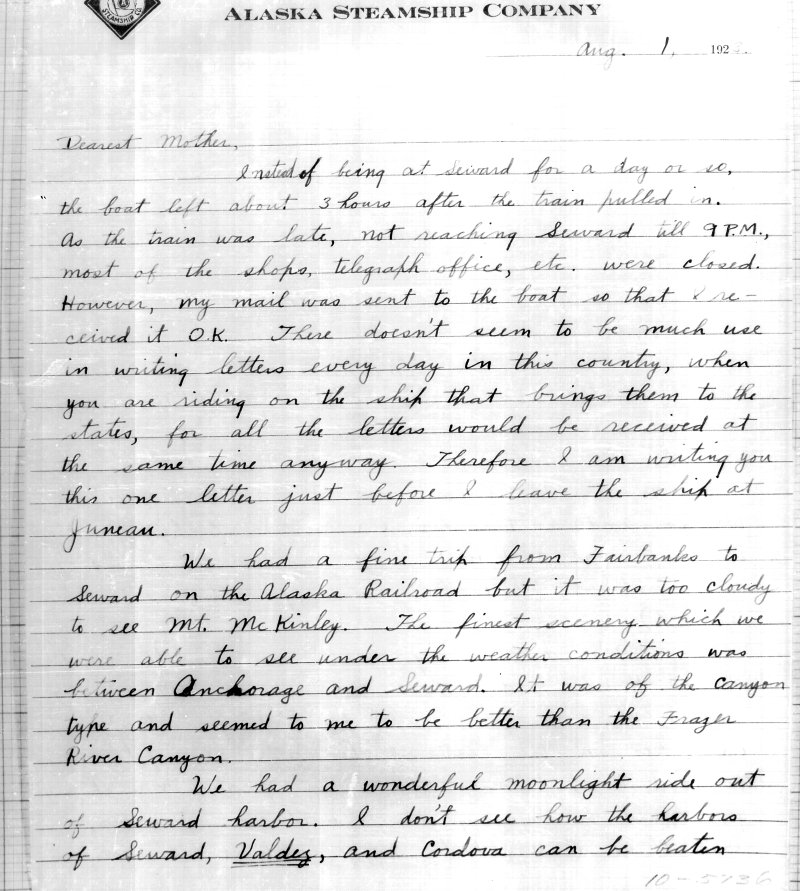 STEAMSHIP CO.
ALASKA STEAMSHIP COMPANY
Aug. 1, 192
Dearest Mother,
Instead of being at Seward for a day or so,
the boat left about 3 hours after the train pulled in.
As the train was late, not reaching Seward till 9 P.M.,
most of the shops, telegraph office, etc. were closed.
However, my mail was sent to the boat so that I re-
ceived it O.K. There doesn't seem to be much use
in writing letters every day in this country, when
you are riding on the ship that brings them to the
states, for all the letters would be received at
the same time anyway. Therefore I am writing you
this one letter just before I leave the ship at
Juneau.
We had a fine trip from Fairbanks to
Seward on the Alaska Railroad but it was too cloudy
to see Mt. McKinley. The finest scenery which we
were able to see under the weather conditions was
between Anchorage and Seward. It was of the canyon
type and seemed to me to be better than the Frazer
River Canyon.
We had a wonderful moonlight ride out
of Seward harbor. I don't see how the harbors
of Seward, Valdez, and Cordova can be beaten
10-5736